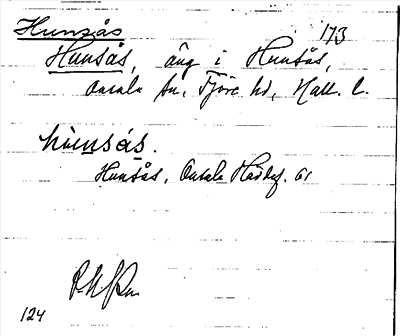 Hunsås 173
Hunsås, äng i Hunsås,
Onsala sn, Fjäre hd, Hall. l.
hùnsás.
Hunsås, Onsala
124